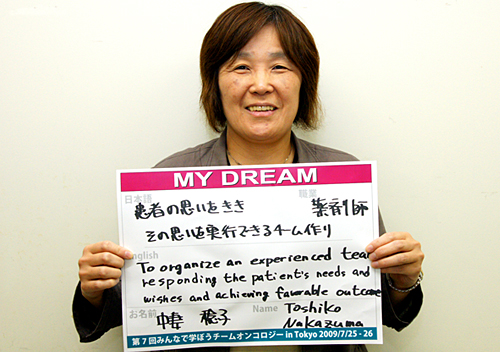 MY DREAM
日本語 職業
患者の思いをきき 薬剤師
その思いを実行できるチーム作り
English
To organize an experienced team
responding the patient's needs and
wishes and achieving favorable outcome
お名前 中妻 穂子 Name Toshiko
Nakazuma
第7回みんなで学ぼうチームオンコロジー in Tokyo 2009/7/25 - 26